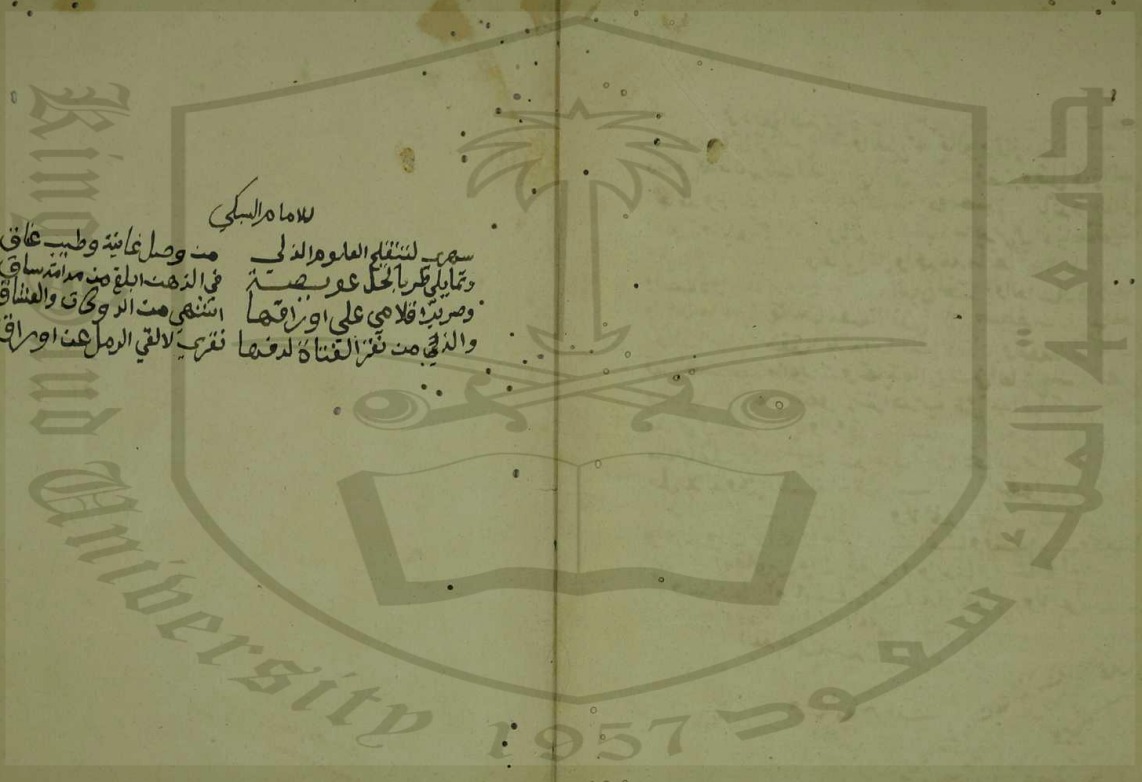 للامام السبكي
سهرى لتنقيح العلوم الذلى من وصل غانية وطيب عناق
وتمايلي طربا لحل عويصة في الذهن ابلغ من مدامة ساق
وصرير اقلامي على اوراقها اشهى من الدوكات والعشاق
والذ من نقر الفتاة لدفها نقرى لالقي الرمل عن اوراق
جامعة الملك سعود
King Saud University 1957